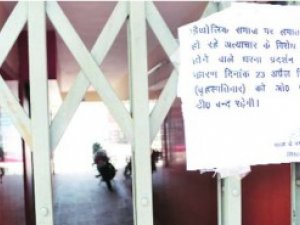 कैथोलिक समाज पर लगाता
हो रहे अत्याचार के विरोध
होने वाले धरना प्रदर्शन
कारण दिनांक 23 अप्रैल
(बृहस्पतिवार) को ओ०
डी० बन्द रहेगी।